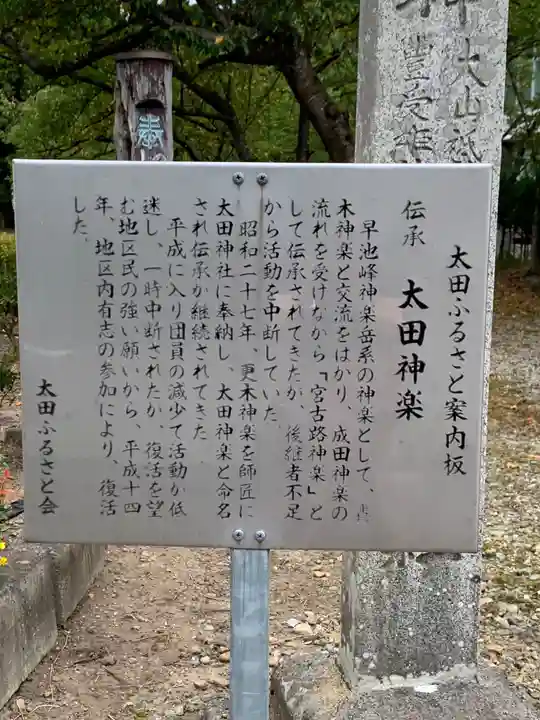 太田ふるさと案内板
伝承 太田神楽
早池峰神楽岳系の神楽として、
木神楽と交流をはかり、成田神楽の
流れを受けながら「宮古路神楽」と
して伝承されてきたが、後継者不足
から活動を中断していた。
昭和二十七年、更木神楽を師匠に
太田神社に奉納し、太田神楽と命名
され伝承が継続されてきた
平成に入り団員の減少で活動が低
迷し、一時中断されたが、復活を望
む地区民の強い願いから、平成十四
年、地区内有志の参加により、復活
した。
太田ふるさと会
大山
豊受
奉